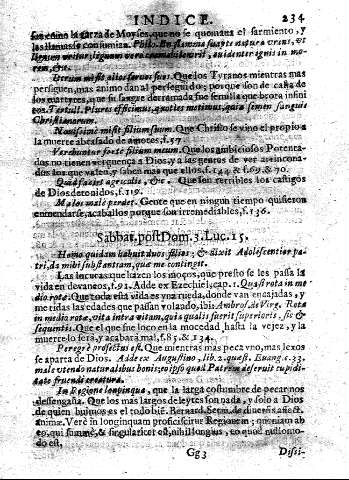 INDICE. 234
como la zarza de Moyses, que no se quemaua el sarmiento, y
las llamas se consumiza. Philo.
Iterum misit alios seruos suos. Que los Tyranos mientras mas
perseguen, mas animo dan al perseguido; porque son de caña de
los martyres, que su sangre derramada fue semilla que brota infini
tos. Tertull. Plures efficimur, quoties metimur. quia semen sanguis
Christianorum.
Nouissimè misit filium suum. Que Christo se vino el propio a
la muerte abrasado de amores, f. 57.
Verebuntur forte filium meum. Que los ambiciosos Potenta-
dos no tienen verguença a Dios, y a las gentes de ver arrincona-
dos los que valen, y saben mas que ellos, f. 144. & f. 69. & 70.
Quid faciet agricolis, &c. Que son terribles los castigos
de Dios detenidos, f. 119.
Malos malè perdet. Gente que en ningun tiempo quisieron
enmendarse, acaballos porque son irremediables, f. 136.
Sabbat. post Dom. 3. Luc. 15.
Homo quidam habuit duos filios; & dixit Adolescentior pa-
tri, da mihi substantiam, que me contingit.
Las locuras que hazen los moços, que presto se les passa la
vida en devaneos, f. 91. Adde ex Ezechiel, cap. 1. Quasi rota in me
dio rota: Que toda esta vida es vna rueda, donde van encajadas, y
metidas las edades que passan volando, ibi. Ambros. de Virg. Rota
in medio rota, vita intra vitam, quia qualis fuerit superioris, sic &
sequentis. Que el que fue loco en la mocedad, hasta la vejez, y la
muerte lo sera, y acabarà mal, f. 85. & 134.
Peregrè profectus est. Que mientras mas peca vno, mas lexos
se aparta de Dios. Adde ex Augustino, lib. 2. quæst. Euang. c. 33.
male vtendo naturalibus bonis; eo ipso quod Patrem deseruit cupidi-
tate fruendi creatura.
In Regione longinqua, que la larga costumbre de pecar nos
dessengaña. Que los mas largos deleytes son nada, y solo a Dios
de quien huimos es el todo bie. Bernard. Serm. de diuersis affect.
animæ. Verè in longinquam proficiscitur Regionem; quoniam ab
eo, qui summè, & singulariter est, nihil longius, eo quod nullo mo-
do est,
Gg 3 Dissi-